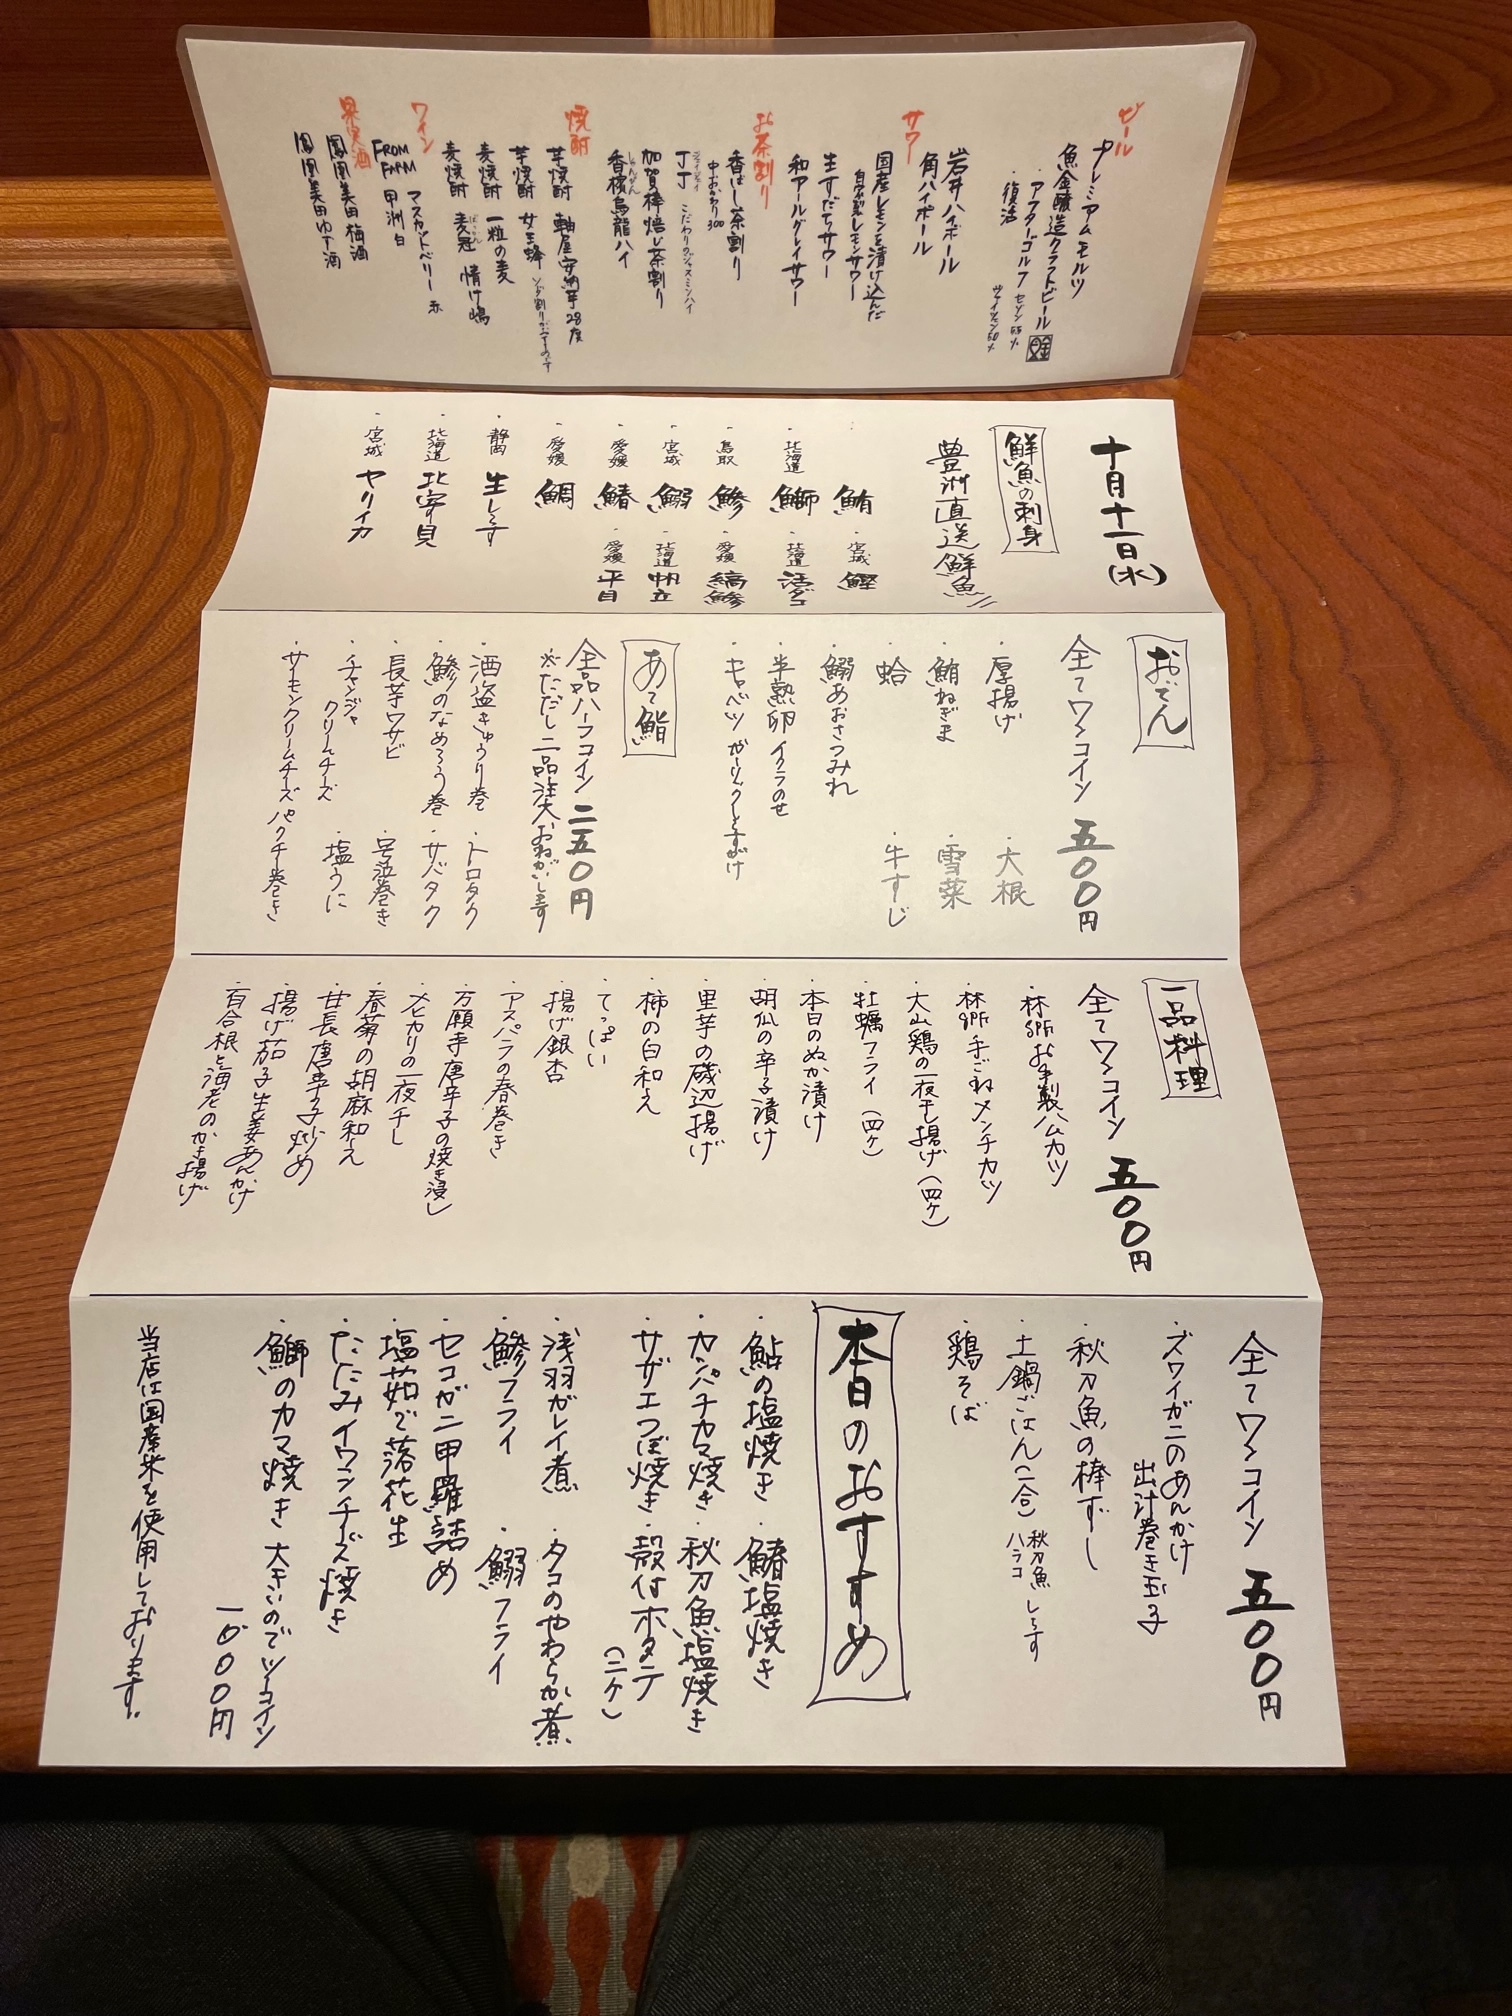 ビール
プレミアムモルツ
魚金醸造クラフトビール
・アフターゴルフ セゾン 5.5%
・復活 ヴァイツェン 5.0%
サワー
岩井ハイボール
角ハイボール
国産レモンを漬け込んだ
自家製レモンサワー
生すだちサワー
和アールグレイサワー
お茶割り
香ばし茶割り
中おかわり300
丁丁 こだわりのジャスミンハイ
加賀棒焙じ茶割り
香檳烏龍ハイ
焼酎
芋焼酎 軸屋安納芋28度
芋焼酎 女王蜂
麦焼酎 一粒の麦
麦焼酎 麦冠 情け嶋
ワイン
FROM FARM マスカットベリー 赤
甲洲 白
果実酒
鳳凰美田 梅酒
鳳凰美田 ゆず酒
十月十一日(水)
鮮魚の刺身
豊洲直送鮮魚
・鮪 ・宮城 鰹
・北海道 鰤 ・北海道 活ダコ
・鳥取 鯵 ・愛媛 縞鯵
・宮城 鰯 ・北海道 帆立
・愛媛 鰆 ・愛媛 平目
・愛媛 鯛
・静岡 生しらす
・北海道 北寄貝
・宮城 ヤリイカ
おでん
全てワンコイン 五〇〇円
・厚揚げ ・大根
・鮪ねぎま ・雪菜
・蛤 ・牛すじ
・鰯あおさつみれ
・半熟卵イクラのせ
・キャベツ ガーリックしらすがけ
あて鮨
全品ハーフコイン 二五〇円
※ただし二品注文おねがいします
・酒盗きゅうり巻 ・トロタク
・鯵のなめろう巻 ・サバタク
・長芋ワサビ ・号泣巻き
・チャンジャ クリームチーズ ・塩うに
・サーモンクリームチーズ パクチー巻き
一品料理
全てワンコイン 五〇〇円
・林SPFお手製ハムカツ
・林SPF手ごねメンチカツ
・大山鶏の一夜干し揚げ(四ヶ)
・牡蠣フライ(四ヶ)
・本日のぬか漬け
・胡瓜の辛子漬け
・里芋の磯辺揚げ
・柿の白和え
・てっぱい
・揚げ銀杏
・アスパラの春巻き
・万願寺唐辛子の焼き浸し
・メヒカリの一夜干し
・春菊の胡麻和え
・甘長唐辛子炒め
・揚げ茄子生姜あんかけ
・百合根と海老のかき揚げ
全てワンコイン 五〇〇円
・ズワイガニのあんかけ
出汁巻き玉子
・秋刀魚の棒ずし
・土鍋ごはん(二合) 秋刀魚 しらす
ハラコ
・鶏そば
本日のおすすめ
・鮎の塩焼き ・鰆塩焼き
・カンパチカマ焼き ・秋刀魚塩焼き
・サザエつぼ焼き ・殻付ホタテ(二ヶ)
・浅羽ガレイ煮 ・タコのやわらか煮
・鯵フライ ・鰯フライ
・セコガニ甲羅詰め
・塩茹で落花生
・たたみイワシチーズ焼き
・鰤のカマ焼き 大きいのでツーコイン
一〇〇〇円
当店は国産米を使用しております。